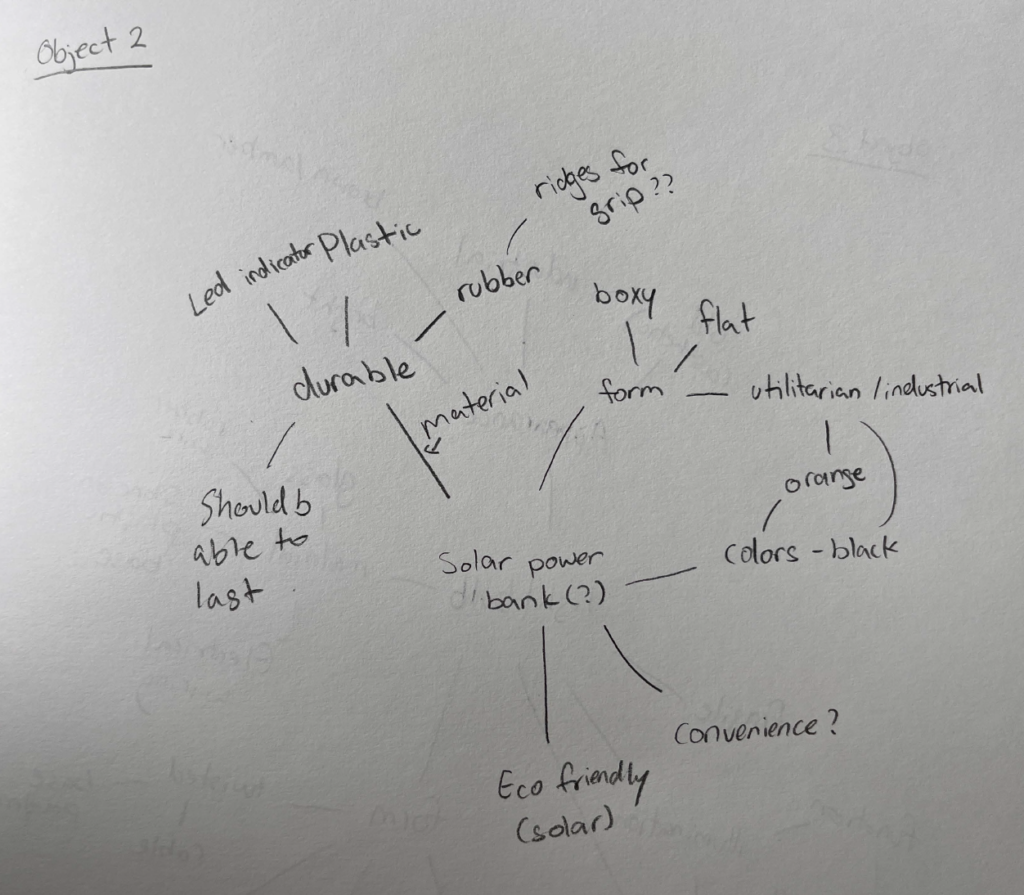 Object 2
ridges for
grip??
Led indicator
Plastic
rubber
boxy
flat
durable
material
form
utilitarian / industrial
orange
Should b
able to
last
Solar power
bank (?)
colors - black
convenience?
Eco friendly
(solar)